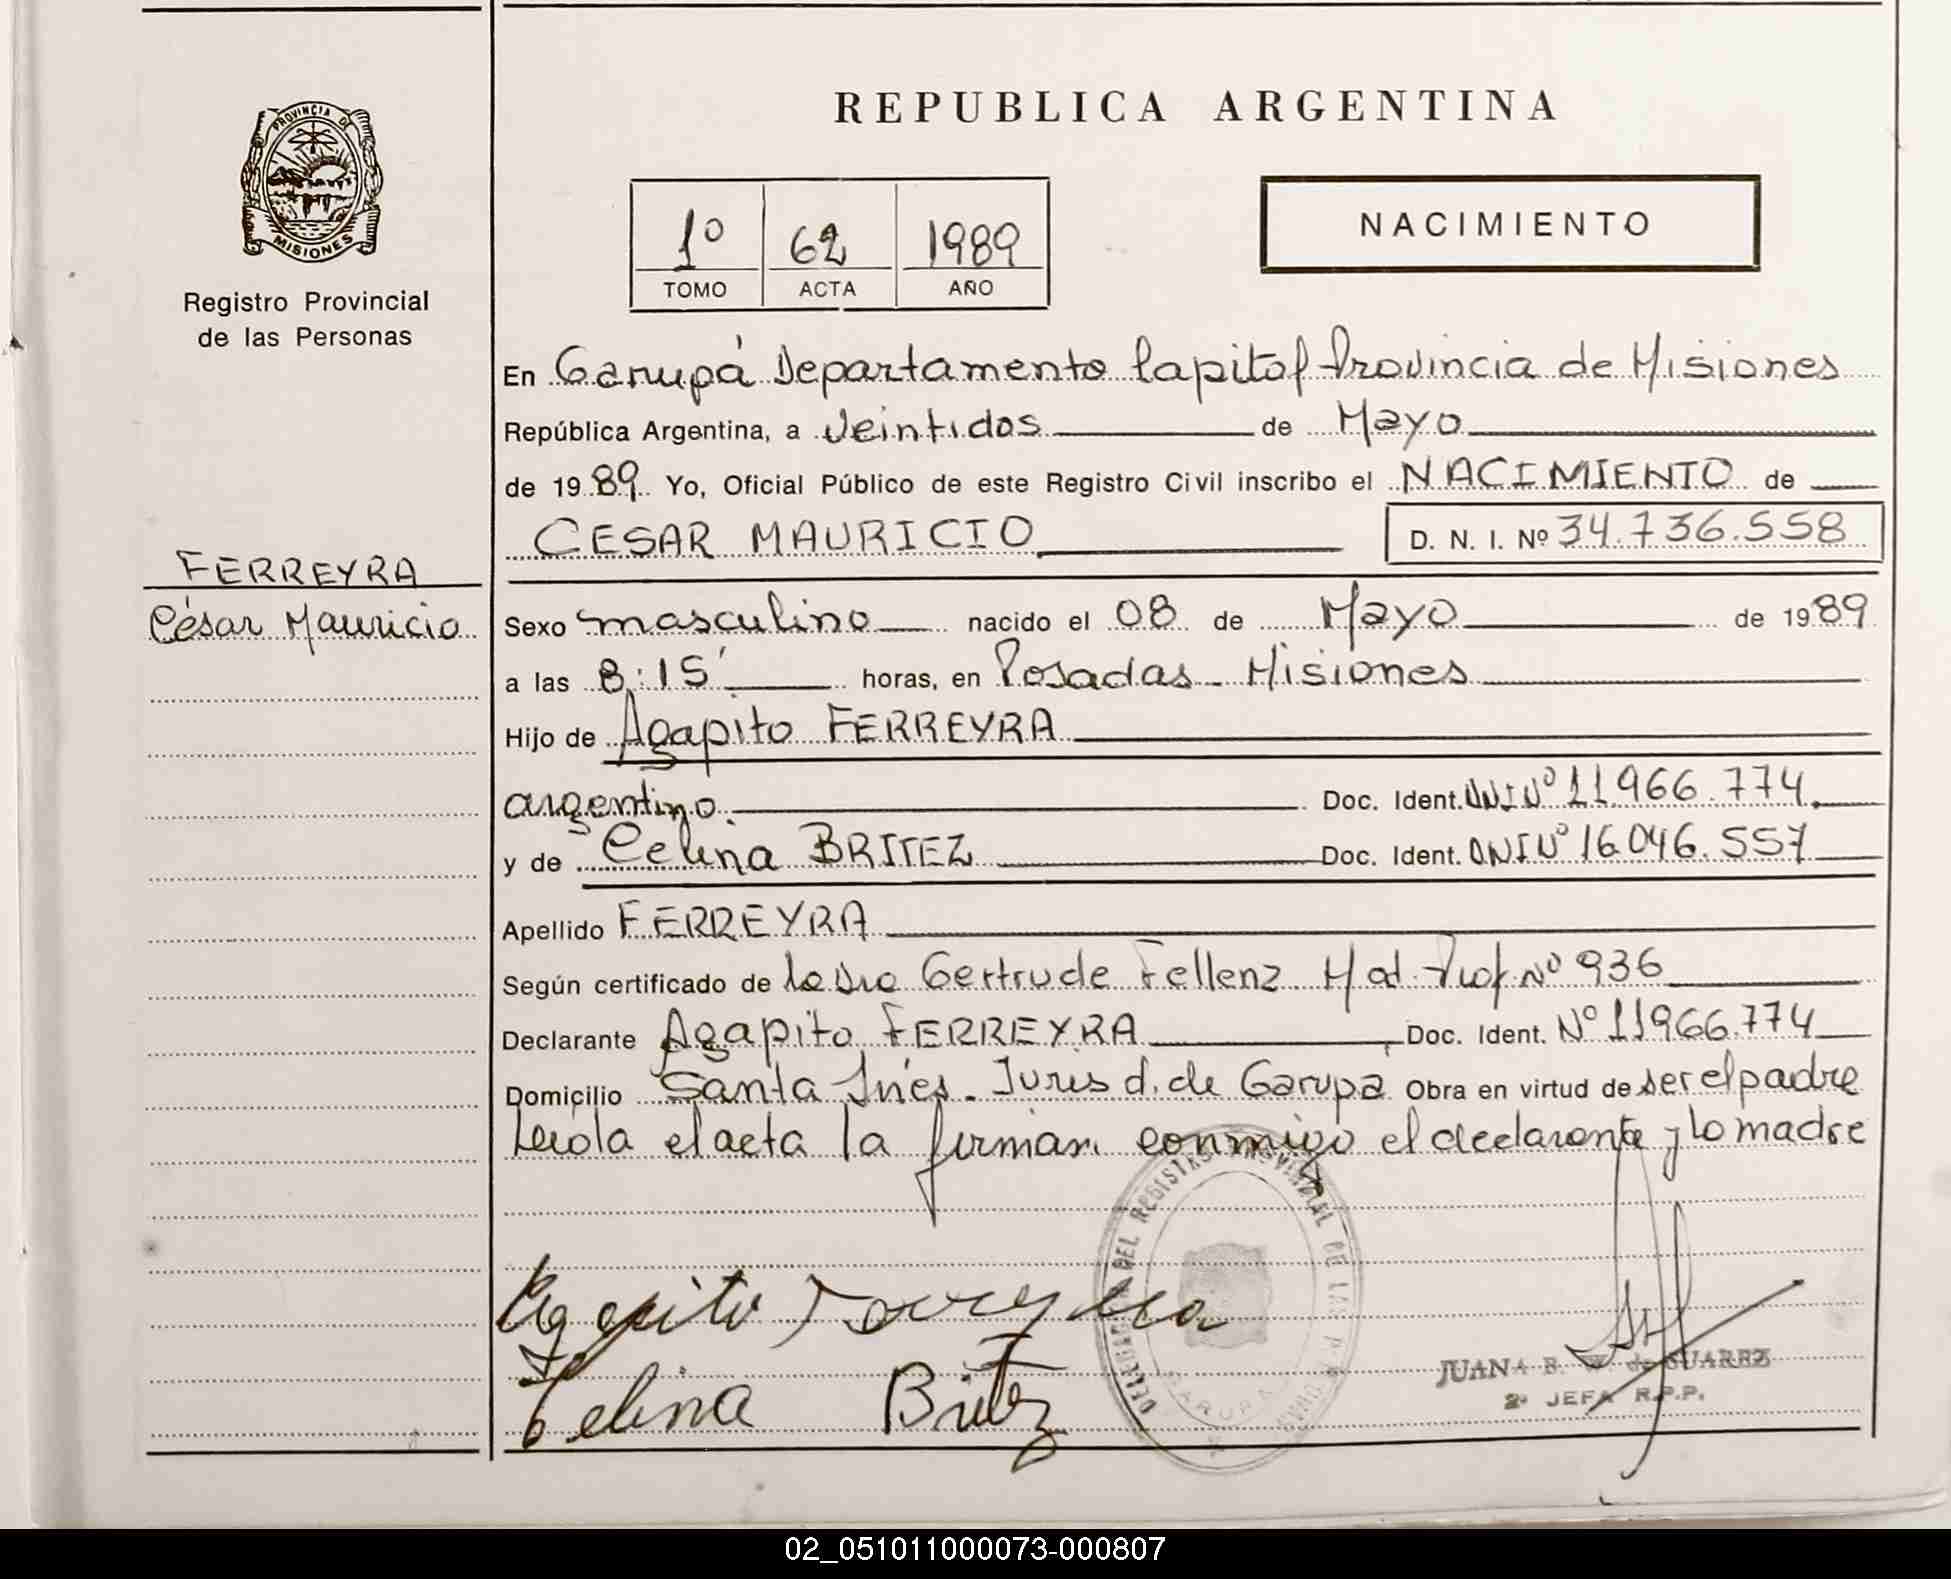 REPUBLICA ARGENTINA
PROVINCIA DE
MISIONES
Registro Provincial
de las Personas
1º 62 1989
TOMO ACTA AÑO
NACIMIENTO
En Garupá Departamento Capital Provincia de Misiones
República Argentina, a veintidos de Mayo
de 1989 Yo, Oficial Público de este Registro Civil inscribo el NACIMIENTO de
CESAR MAURICIO D. N. I. Nº 34.736.558
FERREYRA
César Mauricio
Sexo masculino nacido el 08 de Mayo de 1989
a las 8:15' horas, en Posadas - Misiones
Hijo de Agapito FERREYRA
argentino. Doc. Ident. DNI Nº 11.966.774
y de Celina BRITEZ Doc. Ident. DNI Nº 16.046.557
Apellido FERREYRA
Según certificado de la Dra Gertrude Fellenz Mat. Prof. Nº 936
Declarante Agapito FERREYRA Doc. Ident. Nº 11966.774
Domicilio Santa Inés - Jurisd. de Garupa Obra en virtud de ser el padre
Leída el acta la firman conmigo el declarante y la madre
Agapito Ferreyra
Celina Britez
DEL REGISTRO PROVINCIAL DE LAS
GARUPA
JUANA B. W. de SUAREZ
2ª JEFA R.P.P.
02_051011000073-000807